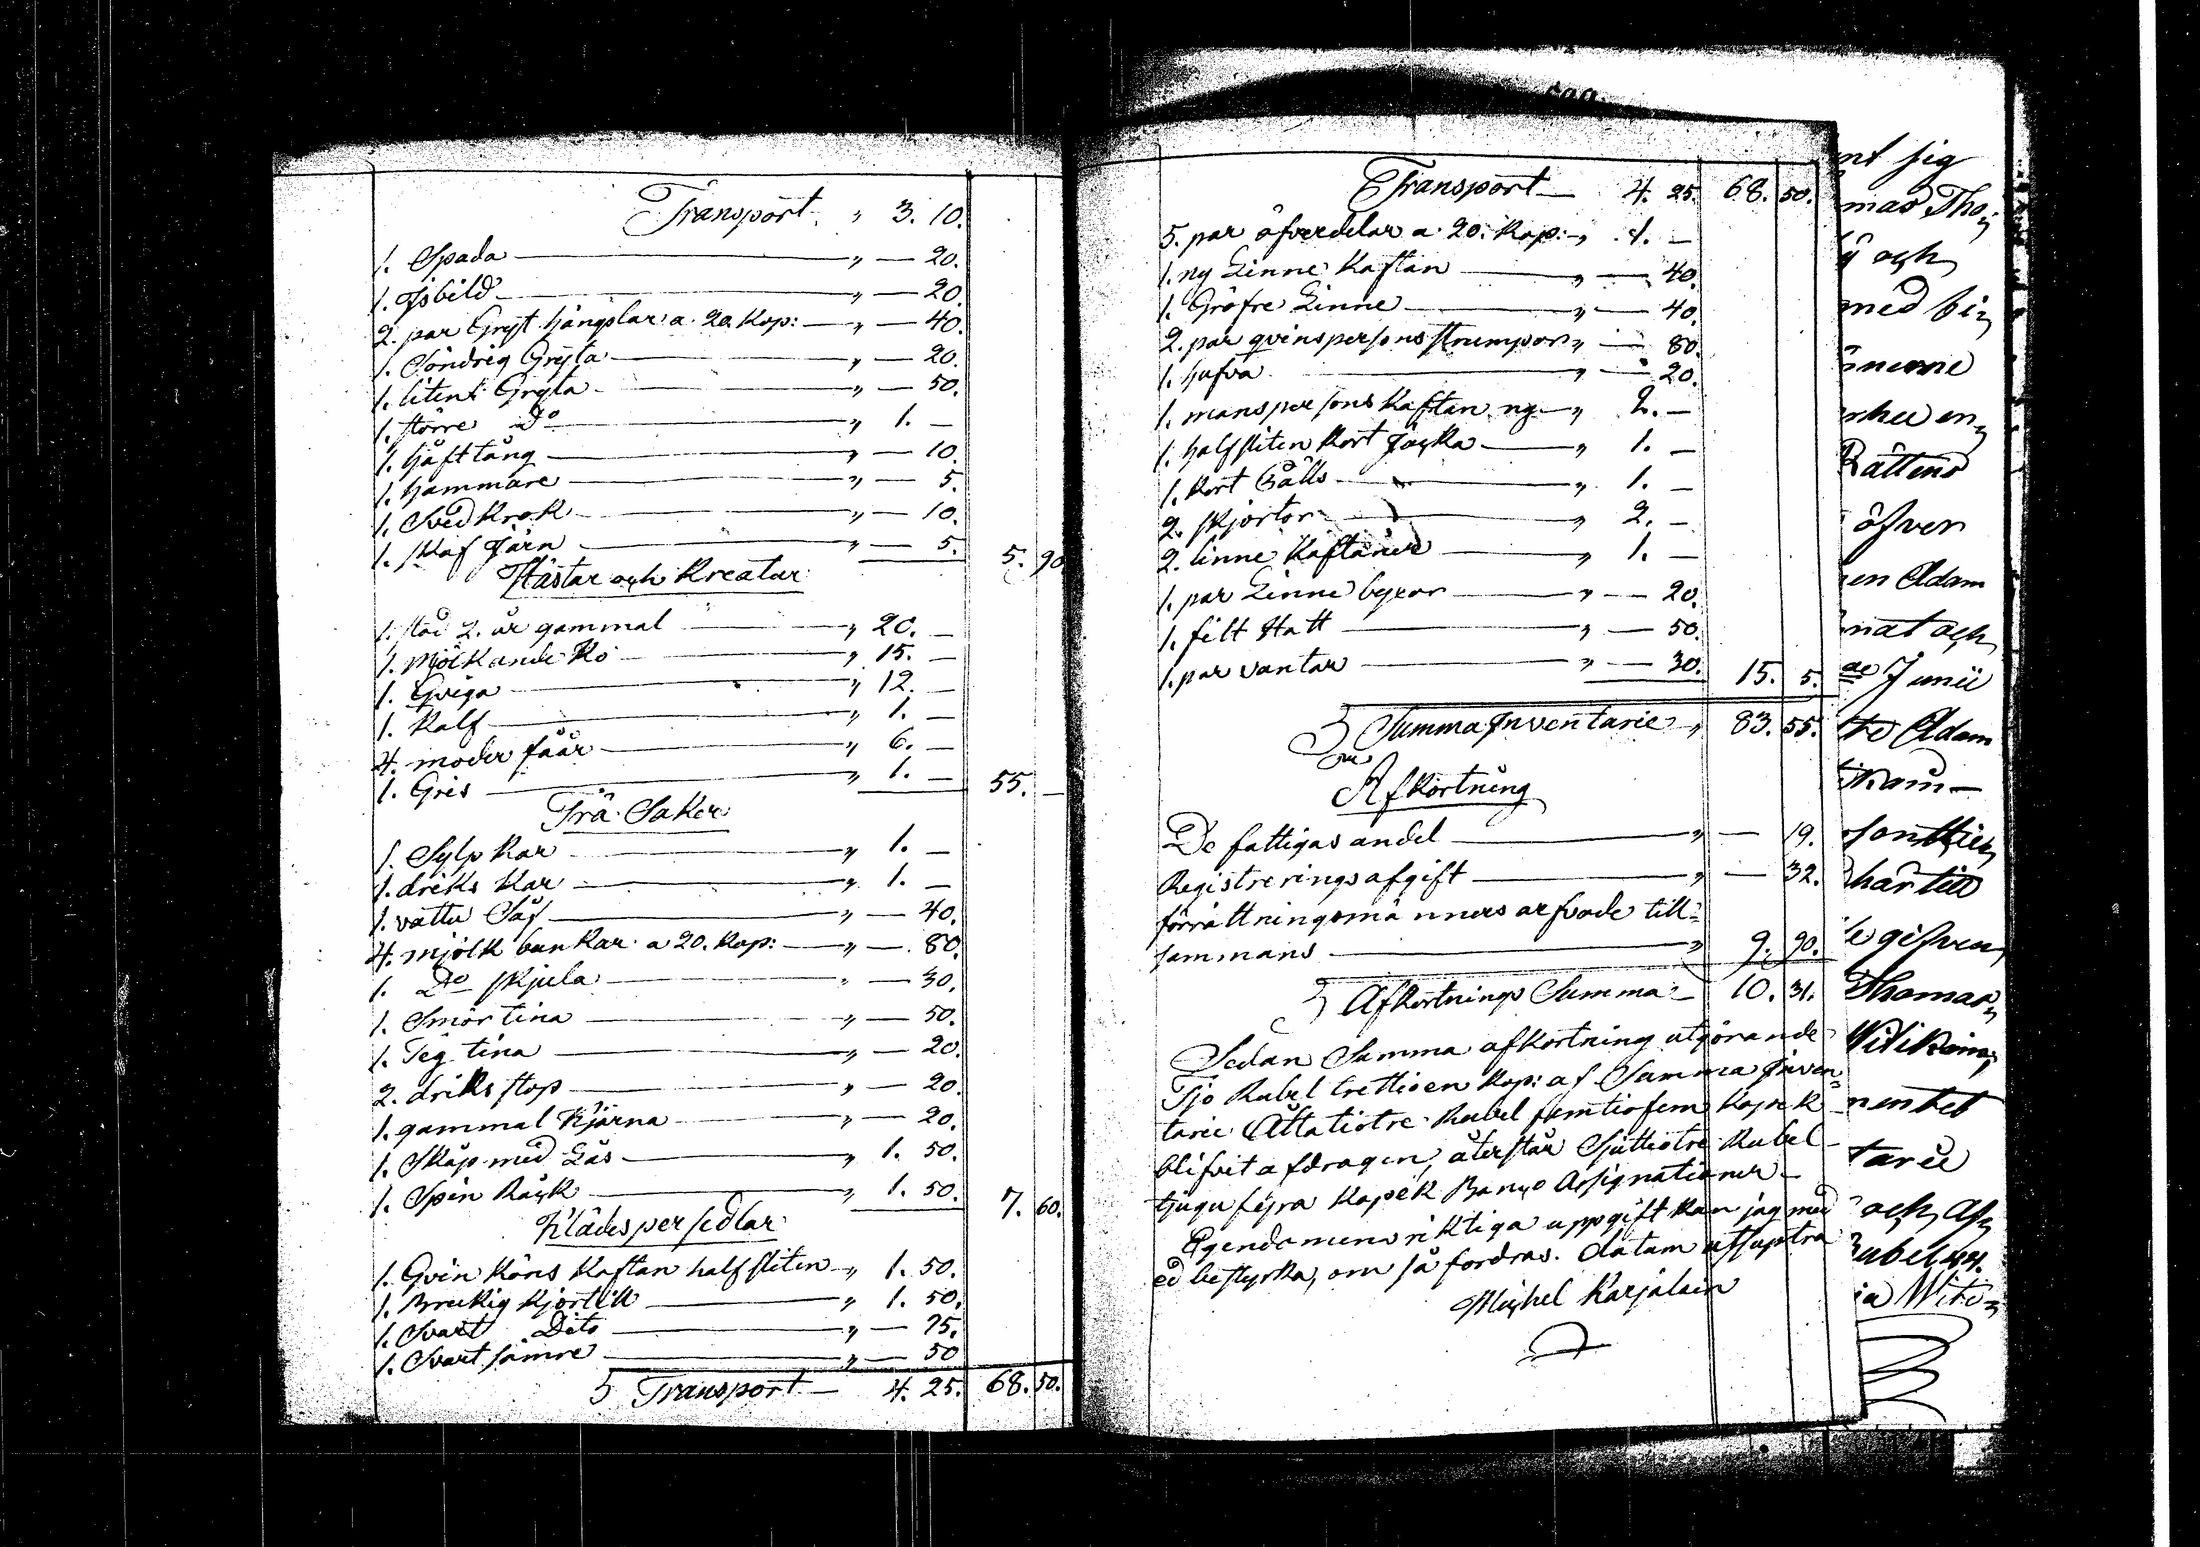 Transport „ 3. 10.
1. Spada „ — 20.
1. Isbild „ — 20.
2. par Gryt hängslar a 20. Kop: „ — 40.
1. Söndrig Gryta „ — 20.
1. liten Gryta „ — 50.
1. större Do „ 1. —
1. håfttång „ — 10.
1. hammare „ — 5.
1. Svedkrok „ — 10.
1. skaf Järn „ — 5. 5. 90
Hästar och Kreatur
1. stod 2. år gammal „ 20. —
1. Mjölkande Ko „ 15. —
1. Qviga „ 12. —
1. Kalf „ 1. —
4. moder fåår „ 6. —
1. Gris „ 1. — 55. —
Trä Saker
1. Sylp Kar „ 1. —
1. driks Kar „ 1. —
1. vattu Såf „ — 40.
4. mjölk bunkar a 20. Kop: „ — 80.
1. Do skjula „ — 30.
1. Smör tina „ — 50.
1. Teg tina „ — 20.
2. driks stop „ — 20.
1. gammal Kjärna „ — 20.
1. Skåp med Lås „ 1. 50.
1. Spin Råck „ 1. 50. 7. 60.
Klädespersedlar
1. Qvin Köns Kaftan halfsliten „ 1. 50.
1. Brukig Kjortell „ 1. 50.
1. Svart Dito „ — 75.
1. Svart sämre „ — 50
Transport — 4. 25. 68. 50.
Transport — 4. 25. 68. 50.
5. par öfverdelar a 20. Kop: „ 1. —
1. ny Linne Kaftan „ — 40.
1. Gröfre Linne „ — 40.
2. par qvinspersons strumpor „ — 80.
1. hufva „ — 20.
1. manspersons Kaftan ny „ 2. —
1. halfsliten Kort Jacka „ 1. —
1. Kort Pälls „ 1. —
2. skjortor „ 2. —
2. linne Kaftaner „ 1. —
1. par Linne byxor „ — 20.
1. filt Hatt „ — 50.
1. par vantar „ — 30. 15. 5.
Summa Inventarie „ 83. 55.
Afkortning
De fattigas andel „ — 19.
Registreringsafgift „ — 32.
förrättningsmänners arfvode till=
sammans „ 9. 90.
Afkortnings Summa — 10. 31.
Sedan Samma afkortning utgörande
Tjo Rubel trettioen Kop: af Summa Inven=
tarie Åttatiotre Rubel femtiofem Kopek
blifvit afdragen, återstår Sjuttiotre Rubel
tjugufyra Kopek Banco Assignationer.
Egendomens riktiga uppgift kan jag med
ed bestyrka, om så fordras. datum utsupra
Michel Karjalain
nt sig
mas Tho=
och
med bi=
en=
Rättens
öfver
en Adam
nat och
Junii
Adam
har till
gifven
Thomas
Witikain
mentet
tarie
och Af=